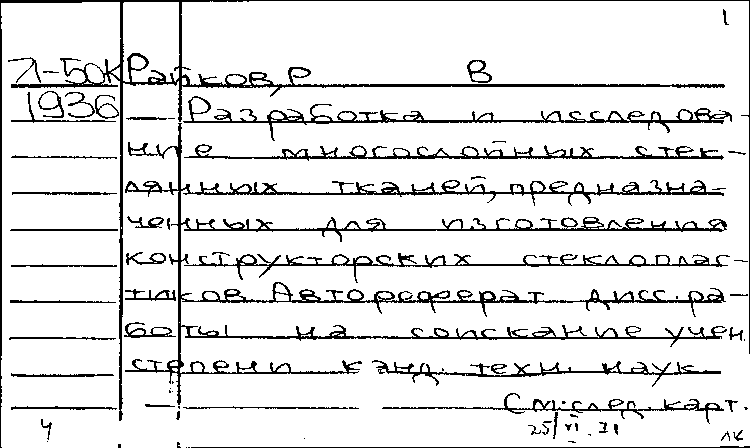 1
Л-50К Райков, Р В
1936 Разработка и исследова-
ние многослойных стек-
лянных тканей, предназна-
ченных для изготовления
конструкторских стеклоплас-
тиков Автореферат дисс. ра-
боты на соискание учен.
степени канд. техн. наук.
См. след. карт.
4 25/VI
лк